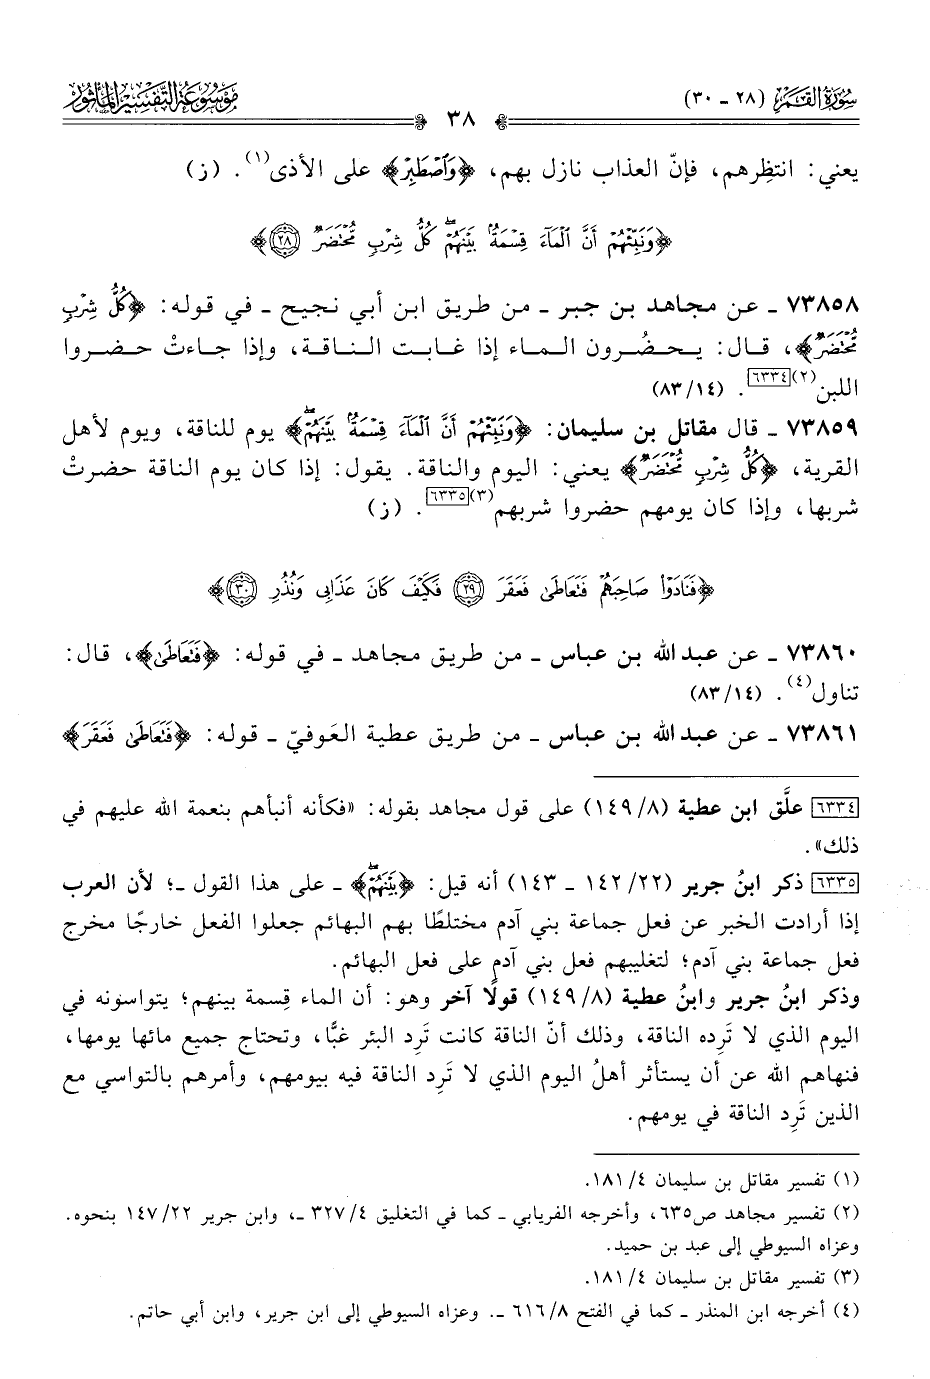 سُورَةُ القَمَرِ (٢٨ - ٣٠)
٣٨
مَوْسُوعَةُ التَّفْسِيرِ المَأْثُورِ
يعني: انتظِرهم، فإنّ العذاب نازل بهم، ﴿وَٱصۡطَبِرۡ﴾ على الأذى(١). (ز)
﴿وَنَبِّئۡهُمۡ أَنَّ ٱلۡمَآءَ قِسۡمَةُۢ بَيۡنَهُمۡۖ كُلُّ شِرۡبٖ مُّحۡتَضَرٞ ٢٨﴾
٧٣٨٥٨ ـ عن مجاهد بن جبر ـ من طريق ابن أبي نجيح ـ في قوله: ﴿كُلُّ شِرۡبٖ
مُّحۡتَضَرٞ﴾، قال: يـحـضُـرون الـماء إذا غـابـت الـناقـة، وإذا جـاءتْ حـضـروا
اللبن(٢)[٦٣٣٤]. (١٤/ ٨٣)
٧٣٨٥٩ ـ قال مقاتل بن سليمان: ﴿وَنَبِّئۡهُمۡ أَنَّ ٱلۡمَآءَ قِسۡمَةُۢ بَيۡنَهُمۡۖ﴾ يوم للناقة، ويوم لأهل
القرية، ﴿كُلُّ شِرۡبٖ مُّحۡتَضَرٞ﴾ يعني: اليوم والناقة. يقول: إذا كان يوم الناقة حضرتْ
شربها، وإذا كان يومهم حضروا شربهم(٣)[٦٣٣٥]. (ز)
﴿فَنَادَوۡاْ صَاحِبَهُمۡ فَتَعَاطَىٰ فَعَقَرَ ٢٩ فَكَيۡفَ كَانَ عَذَابِي وَنُذُرِ ٣٠﴾
٧٣٨٦٠ ـ عن عبد الله بن عباس ـ من طريق مجاهد ـ في قوله: ﴿فَتَعَاطَىٰ﴾، قال:
تناول(٤). (١٤/ ٨٣)
٧٣٨٦١ ـ عن عبد الله بن عباس ـ من طريق عطية العَوفيّ ـ قوله: ﴿فَتَعَاطَىٰ فَعَقَرَ﴾
[٦٣٣٤] علَّق ابن عطية (٨/ ١٤٩) على قول مجاهد بقوله: «فكأنه أنبأهم بنعمة الله عليهم في
ذلك».
[٦٣٣٥] ذكر ابنُ جرير (٢٢/ ١٤٢ ـ ١٤٣) أنه قيل: ﴿بَيۡنَهُمۡۖ﴾ ـ على هذا القول ـ؛ لأن العرب
إذا أرادت الخبر عن فعل جماعة بني آدم مختلطًا بهم البهائم جعلوا الفعل خارجًا مخرج
فعل جماعة بني آدم؛ لتغليبهم فعل بني آدم على فعل البهائم.
وذكر ابنُ جرير وابنُ عطية (٨/ ١٤٩) قولًا آخر وهو: أن الماء قِسمة بينهم؛ يتواسونه في
اليوم الذي لا تَرِده الناقة، وذلك أنّ الناقة كانت تَرِد البئر غبًّا، وتحتاج جميع مائها يومها،
فنهاهم الله عن أن يستأثر أهلُ اليوم الذي لا تَرِد الناقة فيه بيومهم، وأمرهم بالتواسي مع
الذين تَرِد الناقة في يومهم.
(١) تفسير مقاتل بن سليمان ٤/ ١٨١.
(٢) تفسير مجاهد ص٦٣٥، وأخرجه الفريابي ـ كما في التغليق ٤/ ٣٢٧ ـ، وابن جرير ٢٢/ ١٤٧ بنحوه.
وعزاه السيوطي إلى عبد بن حميد.
(٣) تفسير مقاتل بن سليمان ٤/ ١٨١.
(٤) أخرجه ابن المنذر ـ كما في الفتح ٨/ ٦١٦ ـ. وعزاه السيوطي إلى ابن جرير، وابن أبي حاتم.